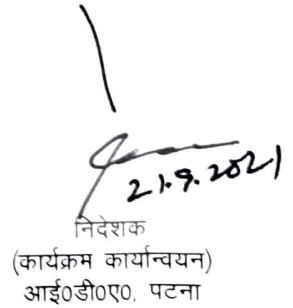 21.9.2021
निदेशक
(कार्यक्रम कार्यान्वयन)
आई०डी०ए०, पटना